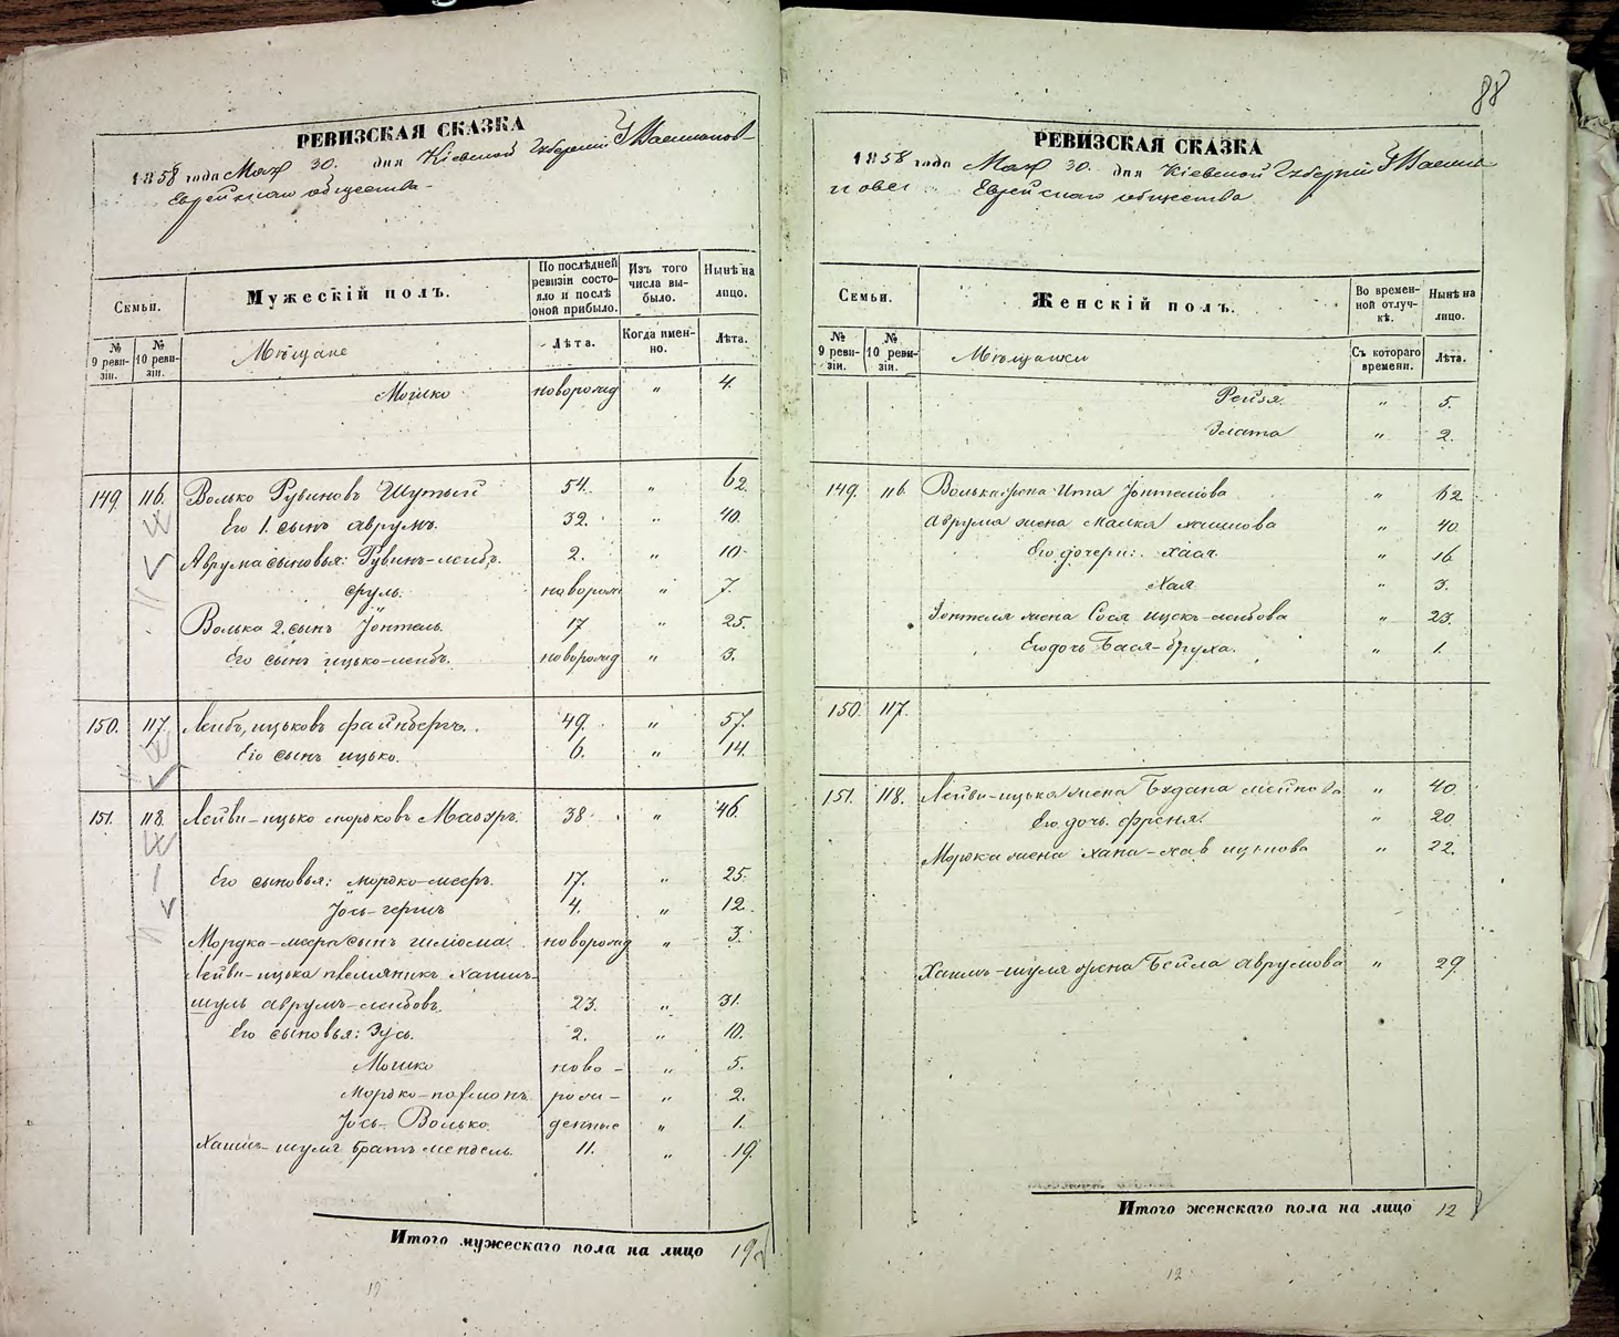 88
РЕВИЗСКАЯ СКАЗКА
1858 года Мая 30. дня Кіевской Губерніи Г Васильков-
Еврейскаго общества
Семьи.
Мужескій полъ.
По послѣдней ревизіи состояло и послѣ оной прибыло.
Изъ того числа выбыло.
Нынѣ на лицо.
№ 9 ревизіи.
№ 10 ревизіи.
Мѣщане
Лѣта.
Когда именно.
Лѣта.
Мошко новорожд " 4.
149. 116. Волько Рувиновъ Шутый 54. " 62.
Его 1. сынъ Аврумъ. 32. " 40.
Аврума сыновья: Рувинъ-лейбъ. 2. " 10.
Сруль. новорож " 7.
Волька 2. сынъ Іонтель. 17 " 25.
Его сынъ ицько-лейбъ. новорожд " 3.
150. 117. Лейбъ ицьковъ файнбергъ. 49. " 57.
Его сынъ ицько. 6. " 14.
151. 118. Лейви-ицько морьковъ 38. " 46.
Его сыновья: мордко-мееръ. 17. " 25.
Іось-герш 4. " 12.
Мордка-меера сынъ шліома. новорожд " 3.
Лейви-ицька племянникъ Хаимъ-
шуль аврумъ-лейбовъ. 23. " 31.
Его сыновья: Зусь. 2. " 10.
Мошко ново- " 5.
Мордко- рож- " 2.
Іось-Волько. денные " 1.
Хаимъ-шуля братъ мендель. 11. " 19.
Итого мужескаго пола на лицо 19
19
РЕВИЗСКАЯ СКАЗКА
1858 года Мая 30. дня Кіевской Губерніи Г Василь
ковс Еврейскаго общества
Семьи.
Женскій полъ.
Во временной отлучкѣ.
Нынѣ на лицо.
№ 9 ревизіи.
№ 10 ревизіи.
Мѣщанки
Съ котораго времени.
Лѣта.
Рейзя. " 5.
Злата " 2.
149. 116. Волька жена Ита Іонтелова " 62.
Аврума жена малка хаимова " 40.
Его дочери: хася. " 16
Хая " 3.
Іонтеля жена Сося ицек-лейбова " 23.
Его дочь Бася-бруха. " 1.
150. 117.
151. 118. Лейви-ицька жена мейнова " 40
Его дочь фрейга. " 20
Мордка жена хана- " 22.
Хаимъ-шуля жена Бейла аврумова " 29.
Итого женскаго пола на лицо 12
12